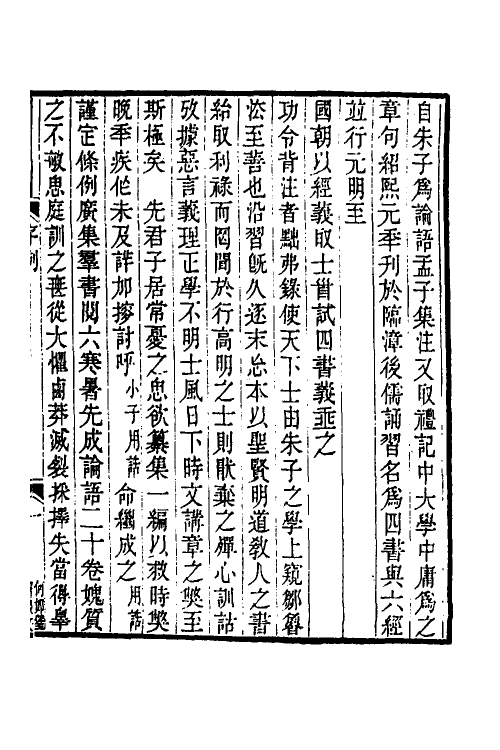 自朱子爲論語孟子集注又取禮記中大學中庸爲之
章句紹熙元年刊於臨漳後儒誦習名爲四書與六經
竝行元明至
國朝以經義取士首試四書義垂之
功令背注者黜弗錄使天下士由朱子之學上窺鄒魯
法至善也沿習旣久逐末忘本以聖賢明道敎人之書
紿取利祿而罔閒於行高明之士則猒棄之殫心訓詁
攷據惡言義理正學不明士風日下時文講章之獘至
斯極矣　先君子居常憂之思欲纂集一編以救時獘
晚年疾作未及詳加撢討呼小子用誥命繼成之用誥
謹定條例廣集羣書閱六寒暑先成論語二十卷媿質
之不敏思庭訓之莫從大懼鹵莽滅裂採擇失當得舉
序例
一